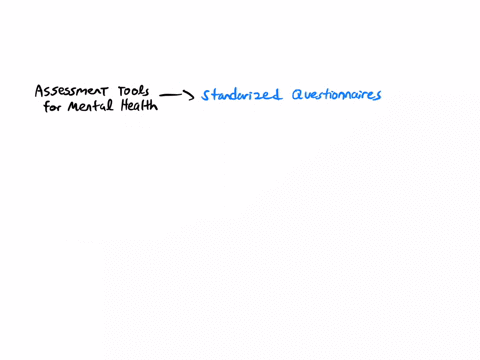 Assessment Tools
for Mental Health
Standarized Questionnaires